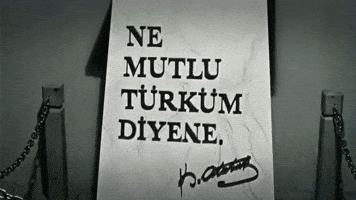 NE
MUTLU
TÜRKÜM
DİYENE.
K. Atatürk